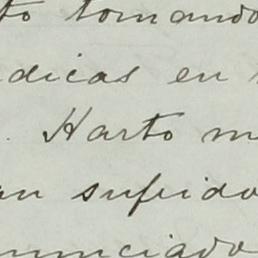 to tomando
dicas en
. Harto m
an sufrido
nunciado